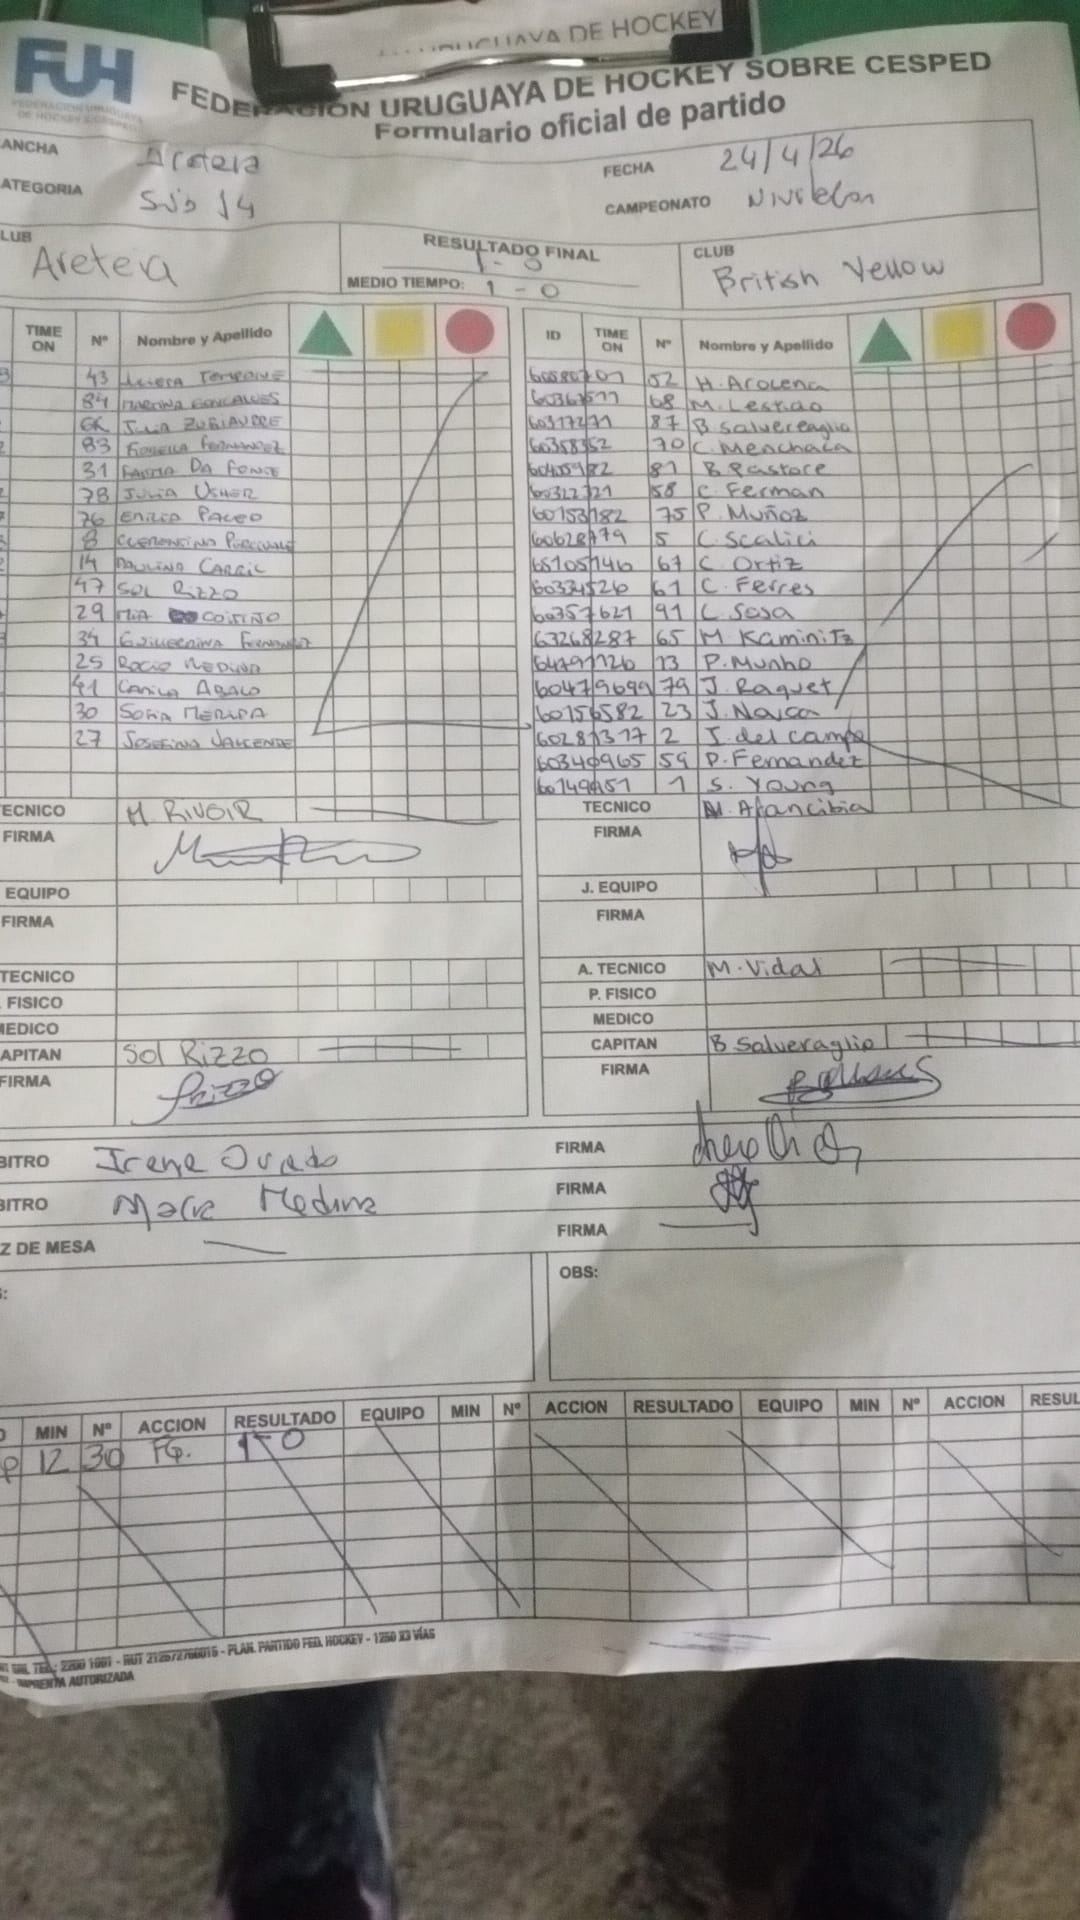 URUGUAYA DE HOCKEY
FUH
FEDERACIÓN URUGUAYA
DE HOCKEY S/CESPED
FEDERACIÓN URUGUAYA DE HOCKEY SOBRE CESPED
Formulario oficial de partido
ANCHA Aretera
FECHA 24/4/26
ATEGORIA Sub 14
CAMPEONATO
LUB Areteia
RESULTADO FINAL 1-0
MEDIO TIEMPO: 1-0
CLUB British Yellow
TIME ON Nº Nombre y Apellido
ID TIME ON Nº Nombre y Apellido
43
52 H. Arocena
84 MARTINA GONCALVES
68 M. Lestido
JULIA ZUBIAURRE
60317271 87 B. Salveraglio
83 FIORELLA FERNANDEZ
60358352 70 C. Menchaca
31 DA FONTE
81 B. Pastore
78 JULIA USHER
58 C. Ferman
76 EMILIA PALEO
60153182 75 P. Muñoz
8
60628779 5 C. Scalici
14 PAULINA CARRIL
65105146 67 C. Ortiz
47 SOL RIZZO
60334526 61 C. Ferres
29 MIA COITIÑO
60357621 91 L. Sosa
34 GUILLERMINA FERNANDEZ
63268287 65 M. Kaminitz
25 ROCIO MEDINA
13 P. Munho
41 CAMILA ABALO
60479699 79 J. Raquet
30 SOFIA MERIDA
60156582 23 J. Navca
27 JOSEFINA VALVERDE
60281317 2 I. del campo
60340965 59 P. Fernandez
60149951 1 S. Young
ECNICO M. RIVOIR
TECNICO M. Arancibia
FIRMA
FIRMA
EQUIPO
J. EQUIPO
FIRMA
FIRMA
TECNICO
A. TECNICO M. Vidal
FISICO
P. FISICO
MEDICO
MEDICO
APITAN Sol Rizzo
CAPITAN B Salveraglio
FIRMA Rizzo
FIRMA
BITRO Irene Oviedo
FIRMA
BITRO Medina
FIRMA
Z DE MESA
FIRMA
OBS:
MIN Nº ACCION RESULTADO EQUIPO MIN Nº ACCION RESULTADO EQUIPO MIN Nº ACCION RESUL
12 30 FG. 1-0
TEL.: 2200 1001 - RUT 212672760015 - PLAN. PARTIDO FED. HOCKEY - 1250 X3 VÍAS
IMPRENTA AUTORIZADA